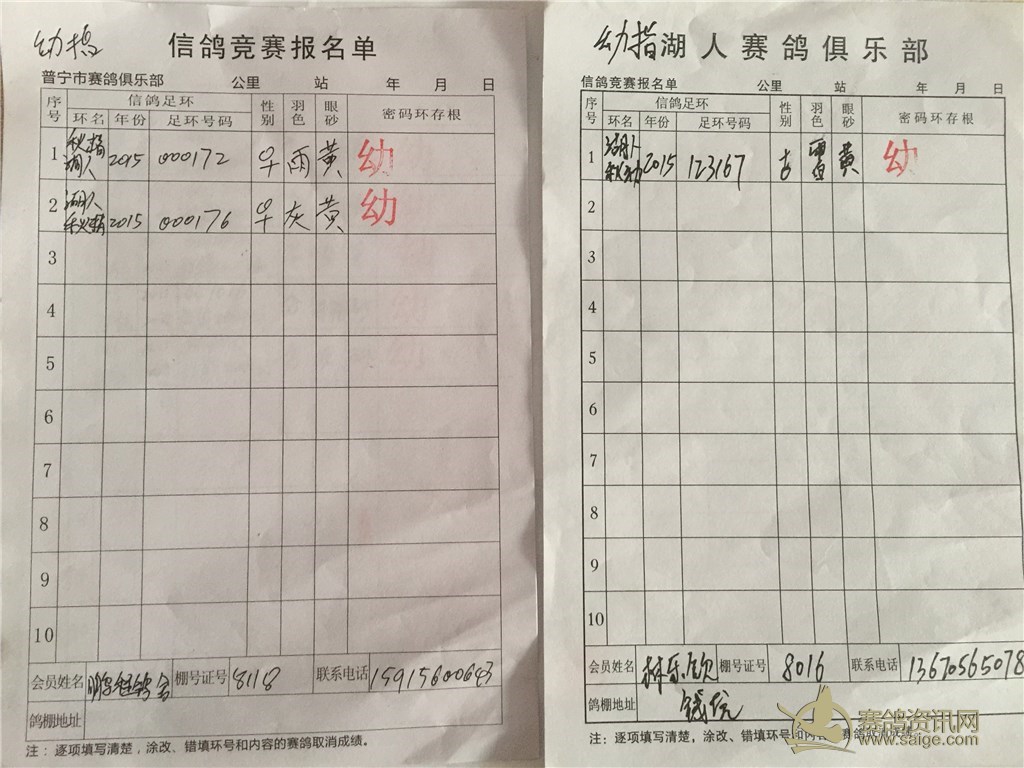 幼指
信鸽竞赛报名单
普宁市赛鸽俱乐部 公里 站 年 月 日
序号 信鸽足环 性别 羽色 眼砂 密码环存根
环名 年份 足环号码
1 2015 000172 雨 黄 幼
2 湖人 2015 000176 灰 黄 幼
3
4
5
6
7
8
9
10
会员姓名 棚号证号 8118 联系电话 15915600683
鸽棚地址
注：逐项填写清楚，涂改、错填环号和内容的赛鸽取消成绩。
幼指 湖人赛鸽俱乐部
信鸽竞赛报名单 公里 站 年 月 日
序号 信鸽足环 性别 羽色 眼砂 密码环存根
环名 年份 足环号码
1 湖人 2015 123167 黄 幼
2
3
4
5
6
7
8
9
10
会员姓名 棚号证号 8016 联系电话 13670565078
鸽棚地址 钱坑
注：逐项填写清楚，涂改、错填环号和内容的赛鸽取消成绩。
赛鸽资讯网
www.saige.com